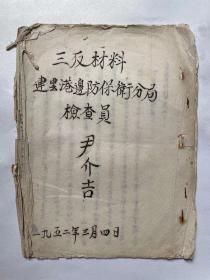 三反材料
建里港邊防保衛分局
檢查員
尹介吉
一九五二年三月四日